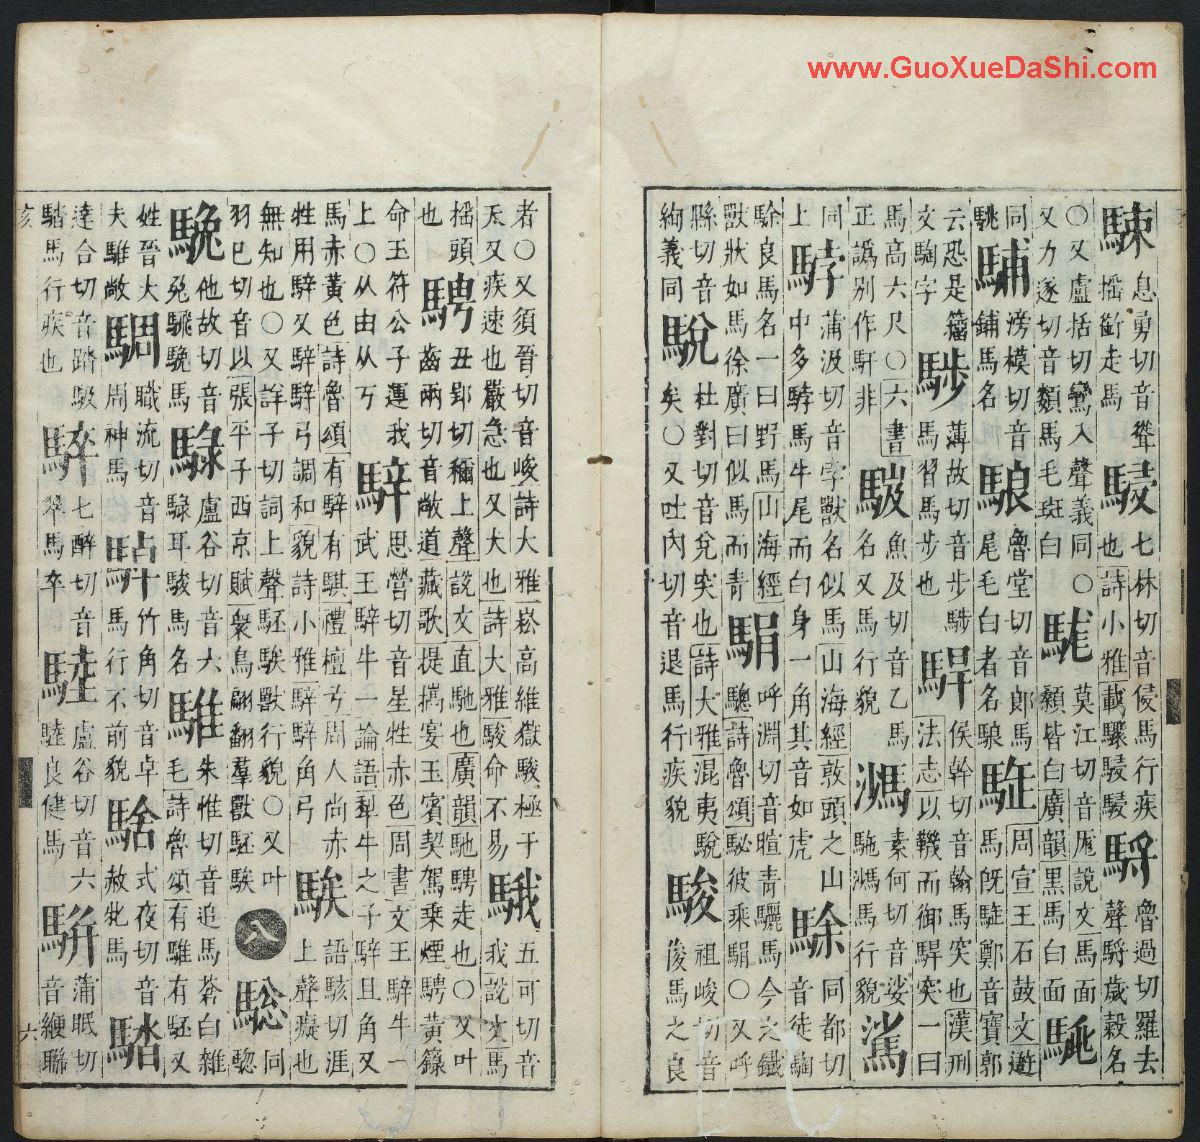 www.GuoXueDaShi.com
駷息勇切音聳搖銜走馬駸七林切音侵馬行疾也詩小雅載驟駸駸魯過切羅去聲歲穀名
〇又盧括切鸞入聲義同〇又力遂切音類馬毛斑白駹莫江切音厖說文馬面顙皆白廣韻黑馬白面駣
同駣滂模切音鋪馬名駺魯堂切音郎馬尾毛白者名駺周宣王石鼓文遊馬旣鄭音寶郭
云恐是籀文騊字薄故切音步馬習馬步也駻侯幹切音翰馬突也漢刑法志以鞿而御駻突一曰
馬高六尺〇六書正譌別作馯非魚及切音乙馬名又馬行貌素何切音娑馬行貌
同上蒲汲切音孛獸名似馬山海經敦頭之山中多馬牛尾而白身一角其音如虎駼同都切音徒騊
駼良馬名一曰野馬山海經獸狀如馬徐廣曰似馬而青駽呼淵切音暄青驪馬今之鐵驄詩魯頌駜彼乘駽〇又呼
縣切音絢義同駾杜對切音兌突也詩大雅混夷駾矣〇又吐內切音退馬行疾貌駿祖峻切音俊馬之良
者〇又須晉切音峻詩大雅崧高維嶽駿極于天又疾速也嚴急也又大也詩大雅駿命不易騀五可切音我說文馬
搖頭也騁丑郢切稱上聲說文直馳也廣韻馳騁走也〇又叶齒兩切音敞道藏歌提擕宴玉賓契駕乘煙騁黃籙
命玉符公子運我上〇从由从丂騂思營切音星牲赤色周書文王騂牛一武王騂牛一論語犁牛之子騂且角又
馬赤黃色詩魯頌有騂有騏禮檀弓周人尚赤牲用騂又騂騂弓調和貌詩小雅騂騂角弓騃語駭切涯上聲癡也
無知也〇又詳子切詞上聲駓騃獸行貌〇又叶羽巳切音以張平子西京賦衆鳥翩翻羣獸駓騃八騘同驄
他故切音兔馬騄盧谷切音六騄耳駿馬名騅朱惟切音追馬蒼白雜毛詩魯頌有騅有駓又
姓晉大夫騅敞騆職流切音周神馬竹角切音卓馬行不前貌騇式夜切音赦牝馬䮚
達合切音踏馺䮚馬行疾也七醉切音翠馬卒盧谷切音六良健馬騈蒲眠切音緶聯
亥 六